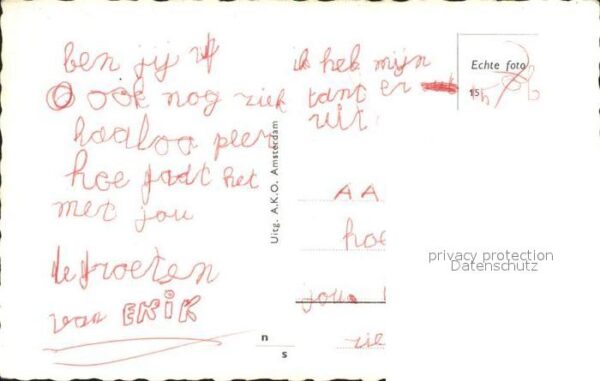 ben jij
ook nog ziek
haaloo peer
hoe gadt het
met jou
de groeten
van ERIK
ik heb mijn
tant er
uit
Uitg. A.K.O. Amsterdam
n
s
Echte foto
15
AA
hoe
jou
zie
privacy protection
Datenschutz